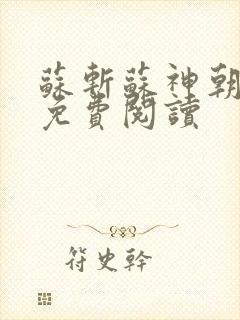 蘇斬蘇神朝
免費閱讀
符史幹